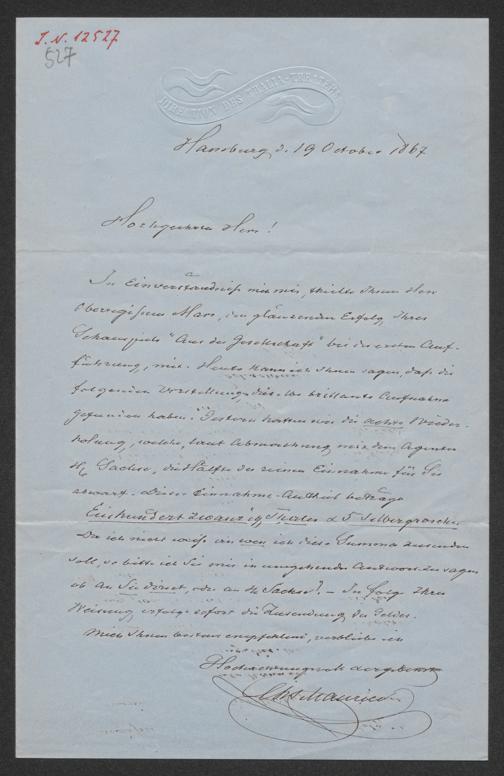 I. N. 12527
527
DIRECTION DES THALIA-THEATERS
Hamburg d. 19 October 1867
Hochgeehrter Herr!
Im Einverständniß mit mir, theilte Ihnen Herr
Oberregisseur Marr, den glänzenden Erfolg, Ihres
Schauspiels "Aus der Gesellschaft" bei der ersten Auf-
führung, mit. Heute kann ich Ihnen sagen, daß die
folgenden Vorstellungen dieselbe brillante Aufnahme
gefunden haben. Gestern hatten wir die achte Wieder-
holung, welche, laut Abmachung mit dem Agenten
H. Sachse, die Hälfte der reinen Einnahme für Sie
abwarf. Dieser Einnahme-Antheil beträgt
Einhundert zwanzig Thaler u 5 Silbergroschen
Da ich nicht weiß an wen ich diese Summe zusenden
soll, so bitte ich Sie mir in umgehender Antwort zu sagen
ob an Sie direct, oder an H. Sachse? – In folge Ihrer
Weisung, erfolgt sofort die Zusendung des Geldes.
Mich Ihnen bestens empfehlend, verbleibe ich
Hochachtungsvoll der Ihre
Maurice